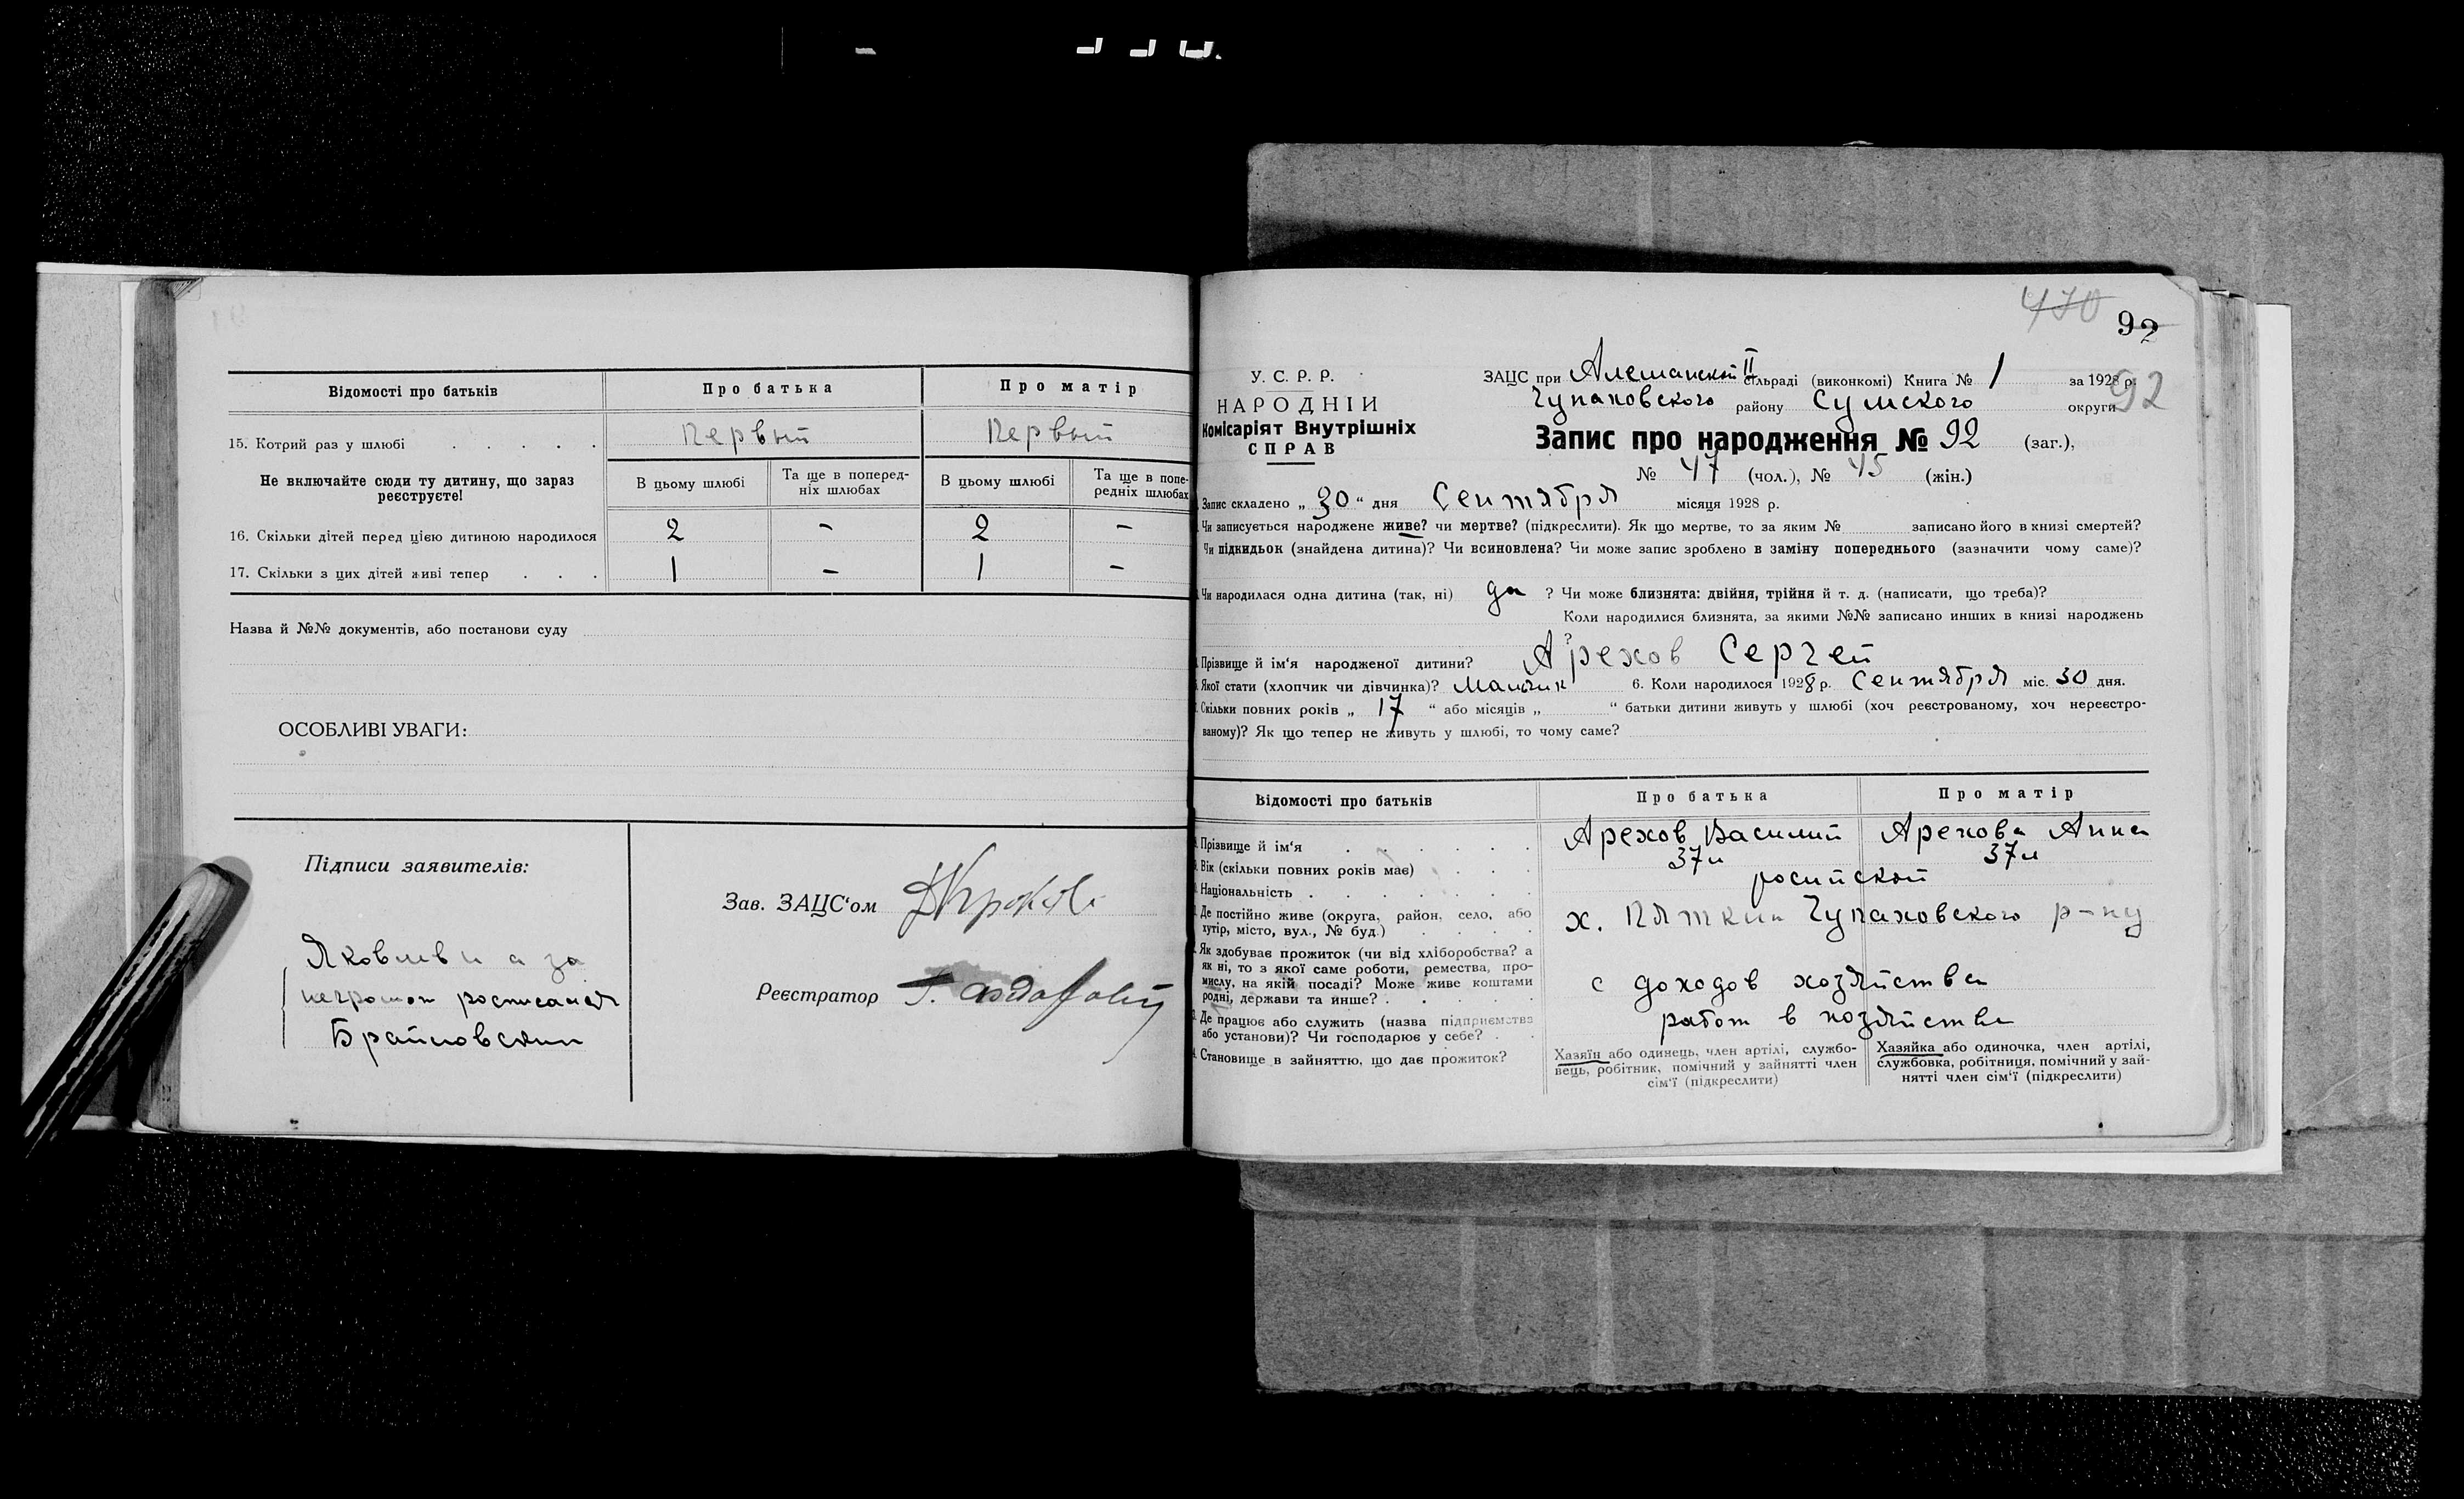 Відомості про батьків Про батька Про матір
15. Котрий раз у шлюбі Первый Первый
Не включайте сюди ту дитину, що зараз реєструєте!
В цьому шлюбі Та ще в поперед-ніх шлюбах В цьому шлюбі Та ще в попе-редніх шлюбах
16. Скільки дітей перед цією дитиною народилося 2 – 2 –
17. Скільки з цих дітей живі тепер 1 – 1 –
Назва й №№ документів, або постанови суду
ОСОБЛИВІ УВАГИ:
Підписи заявителів:
за
росписался
Зав. ЗАЦС‘ом
Реєстратор
470
92
92
У. С. Р. Р.
НАРОДНІЙ
Комісаріят Внутрішніх
СПРАВ
ЗАЦС при Алешанской II сільраді (виконкомі) Книга № 1 за 1928 р.
Чупаховского району Сумского округи
Запис про народження № 92 (заг.),
№ 47 (чол.), № 45 (жін.)
Запис складено „ 30 “ дня Сентября місяця 1928 р.
Чи записується народжене живе? чи мертве? (підкреслити). Як що мертве, то за яким № записано його в книзі смертей?
Чи підкидьок (знайдена дитина)? Чи всиновлена? Чи може запис зроблено в заміну попереднього (зазначити чому саме)?
Чи народилася одна дитина (так, ні) да ? Чи може близнята: двійня, трійня й т. д. (написати, що треба)?
Коли народилися близнята, за якими №№ записано инших в книзі народжень
?
Прізвище й ім‘я народженої дитини? Арехов Сергей
Якої стати (хлопчик чи дівчинка)? Мальчик 6. Коли народилося 1928 р. Сентября міс. 30 дня.
Скільки повних років „ 17 “ або місяців „ “ батьки дитини живуть у шлюбі (хоч реєстрованому, хоч нереєстро-
ваному)? Як що тепер не живуть у шлюбі, то чому саме?
Відомості про батьків Про батька Про матір
Прізвище й ім‘я Арехов Василий Арехова Анна
Вік (скільки повних років має) 37 л 37 л
Національність росийской
Де постійно живе (округа, район, село, або
хутір, місто, вул., № буд.) х. Пяткин Чупаховского р-ну
Як здобуває прожиток (чи від хліборобства? а
як ні, то з якої саме роботи, ремества, про-
мислу, на якій посаді? Може живе коштами
родні, держави та инше? с доходов хозяйства
Де працює або служить (назва підприємства
або установи)? Чи господарює у себе? работ в хозяйстве
Становище в зайняттю, що дає прожиток?
Хазяїн або одинець, член артілі, службо-
вець, робітник, помічний у зайнятті член
сім‘ї (підкреслити)
Хазяйка або одиночка, член артілі,
службовка, робітниця, помічний у зай-
нятті член сім‘ї (підкреслити)